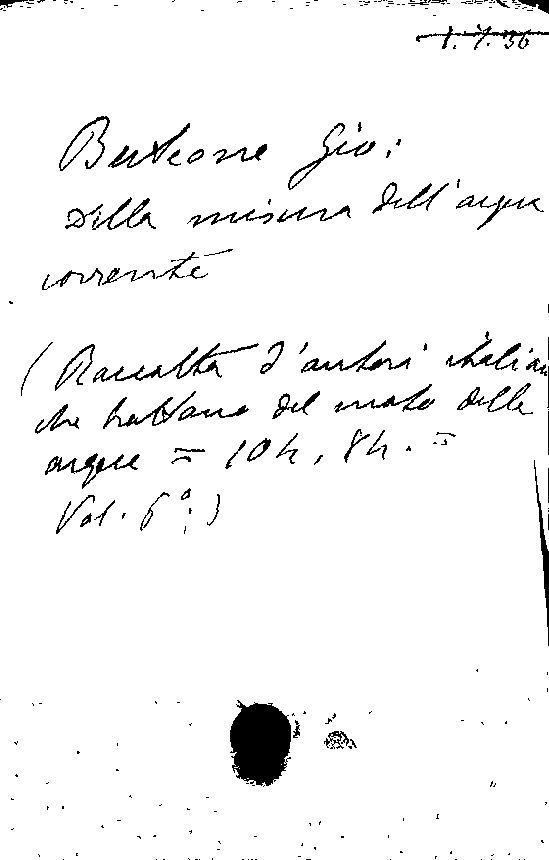 1.7.36
Buteone Gio:
Della misura dell'acqua
corrente
(Raccolta d'autori italian
che trattano del moto delle
acque = 10 h, 8 h. =
Vol. 6°:)